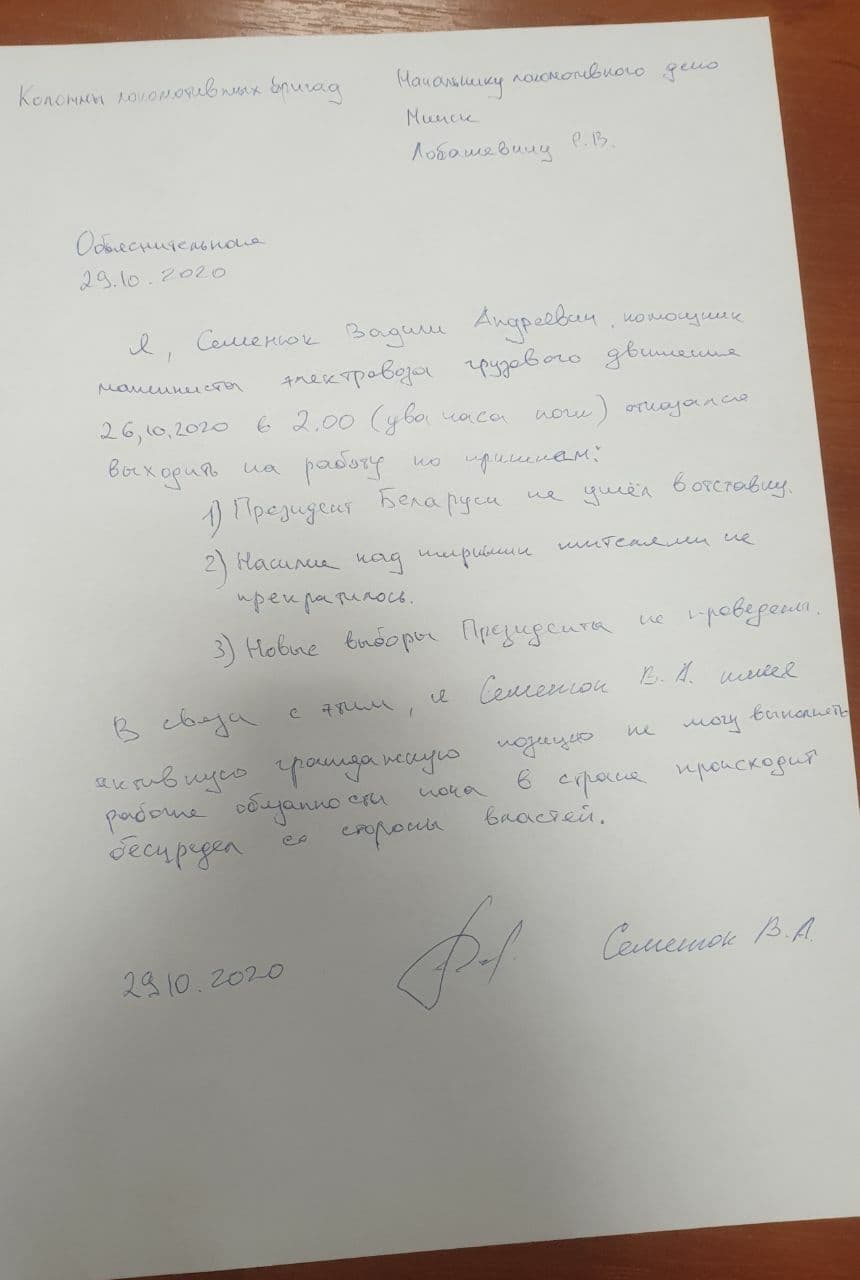 Колонны локомотивных бригад
Начальнику локомотивного депо
Минск
Лобашевичу Р.В.
Объяснительная
29.10.2020
Я, Семенюк Вадим Андреевич, помощник
машиниста электровоза грузового движения
26,10,2020 в 2.00 (два часа ночи) отказался
выходить на работу по причинам:
1) Президент Беларуси не ушёл в отставку.
2) Насилие над мирными жителями не
прекратилось.
3) Новые выборы Президента не проведены.
В связи с этим, я Семенюк В.А. имея
активную гражданскую позицию не могу выполнять
рабочие обязанности пока в стране происходит
беспредел со стороны властей.
29.10.2020 Семенюк В.А.